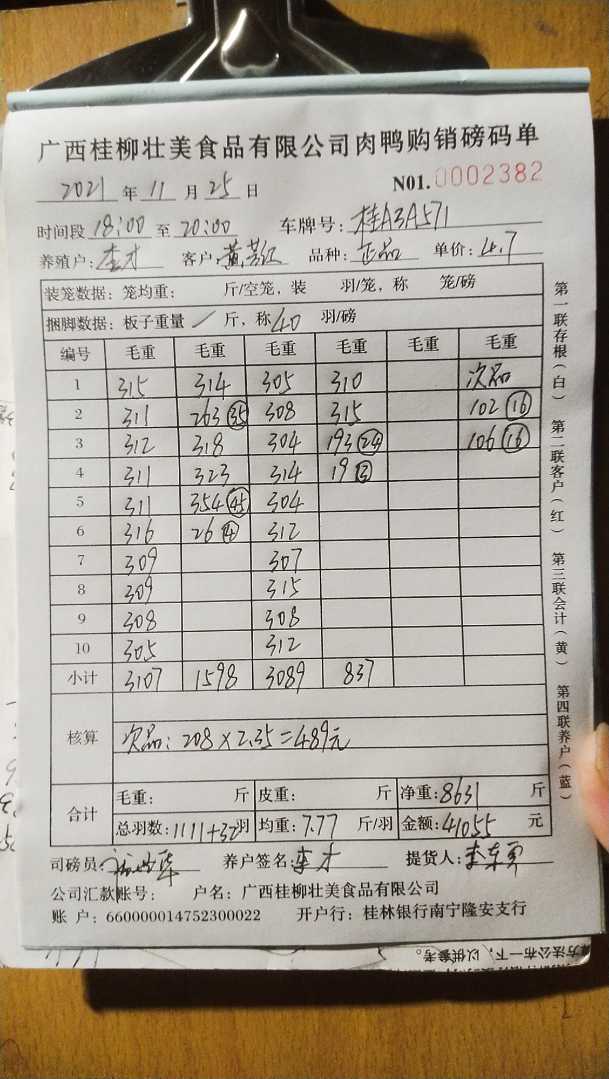 广西桂柳壮美食品有限公司肉鸭购销磅码单
2021 年 11 月 25 日 N01.0002382
时间段 18:00 至 20:00 车牌号: 桂A3A571
养殖户: 李才 客户: 黄 品种: 正品 单价: 4.7
装笼数据: 笼均重: 斤/空笼, 装 羽/笼, 称 笼/磅
捆脚数据: 板子重量 / 斤, 称 40 羽/磅
编号 毛重 毛重 毛重 毛重 毛重 毛重
1 315 314 305 310 次品
2 311 263 35 308 315 102 16
3 312 318 304 193 24 106 16
4 311 323 314 19 3
5 311 354 45 304
6 316 26 4 312
7 309 307
8 309 315
9 308 308
10 305 312
小计 3107 1598 3089 837
核算 次品: 208×2.35=489元
合计 毛重: 斤 皮重: 斤 净重: 8631 斤
总羽数: 1111+32 羽 均重: 7.77 斤/羽 金额: 41055 元
司磅员: 养户签名: 李才 提货人: 李东
公司汇款账号: 户名: 广西桂柳壮美食品有限公司
账 户: 660000014752300022 开户行: 桂林银行南宁隆安支行
第一联存根(白) 第二联客户(红) 第三联会计(黄) 第四联养户(蓝)
方法公布一下, 以供参考。